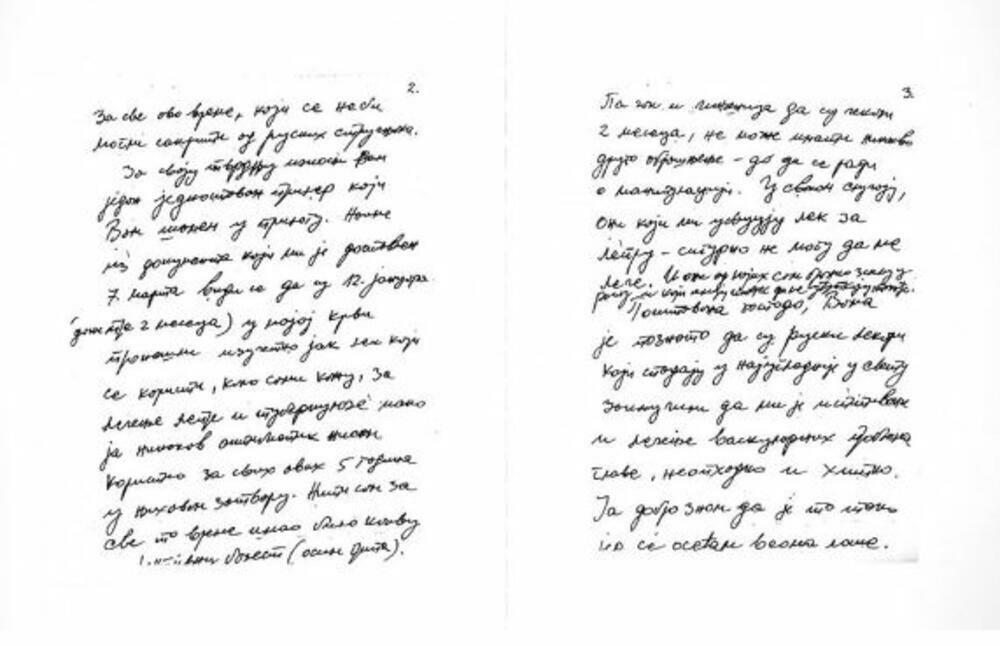 2.
За све ово време, који се неби
могли сакрити од руских стручњака.
За своју тврдњу износим Вам
један једноставан пример који
Вам шаљем у прилогу. Наиме
из документа који ми је достављен
7. марта види се да су 12. јануара
(дакле пре 2 месеца) у мојој крви
пронашли изузетно јак лек који
се користи, како сами кажу, за
лечење лепре и туберкулозе мако
ја никаков антибиотик нисам
користио за свих ових 5 година
у њиховом затвору. Нити сам за
све то време имао било какву
болест (осим грипа).
3.
Па ток и чињеница да су чекали
2 месеца, не може имати никакво
друго објашњење – до да се ради
о манипулацији. У сваком случају,
они који ми уваљују лек за
лепру – сигурно не могу да ме
лече. И они од којих сам бранио земљу у
рату и који имају интерес да ме
Поштована господо, Вама
је познато да су руски лекари
који спадају у најугледније у свету
закључили да ми је испитивање
и лечење васкуларних проблема
главе, неопходно и хитно.
Ја добро знам да је то тако
јер се осећам веома лоше.